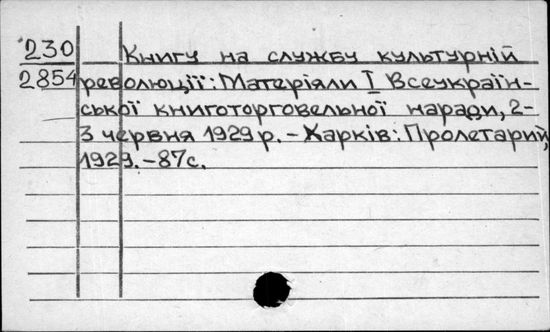 230 Книгу на службу культурній
2854 революції: Матеріяли I Всеукраїн-
ської книготорговельної наради, 2-
3 червня 1929 р. – Харків: Пролетарий,
1929. – 87с.